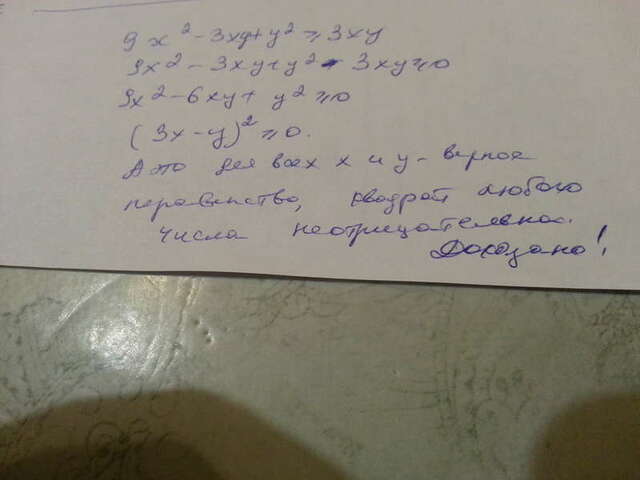 9x² - 3xy + y² ≥ 3xy
9x² - 3xy + y² - 3xy ≥ 0
9x² - 6xy + y² ≥ 0
(3x - y)² ≥ 0.
А это для всех x и y - верное
неравенство, квадрат любого
числа неотрицательное.
Доказано!